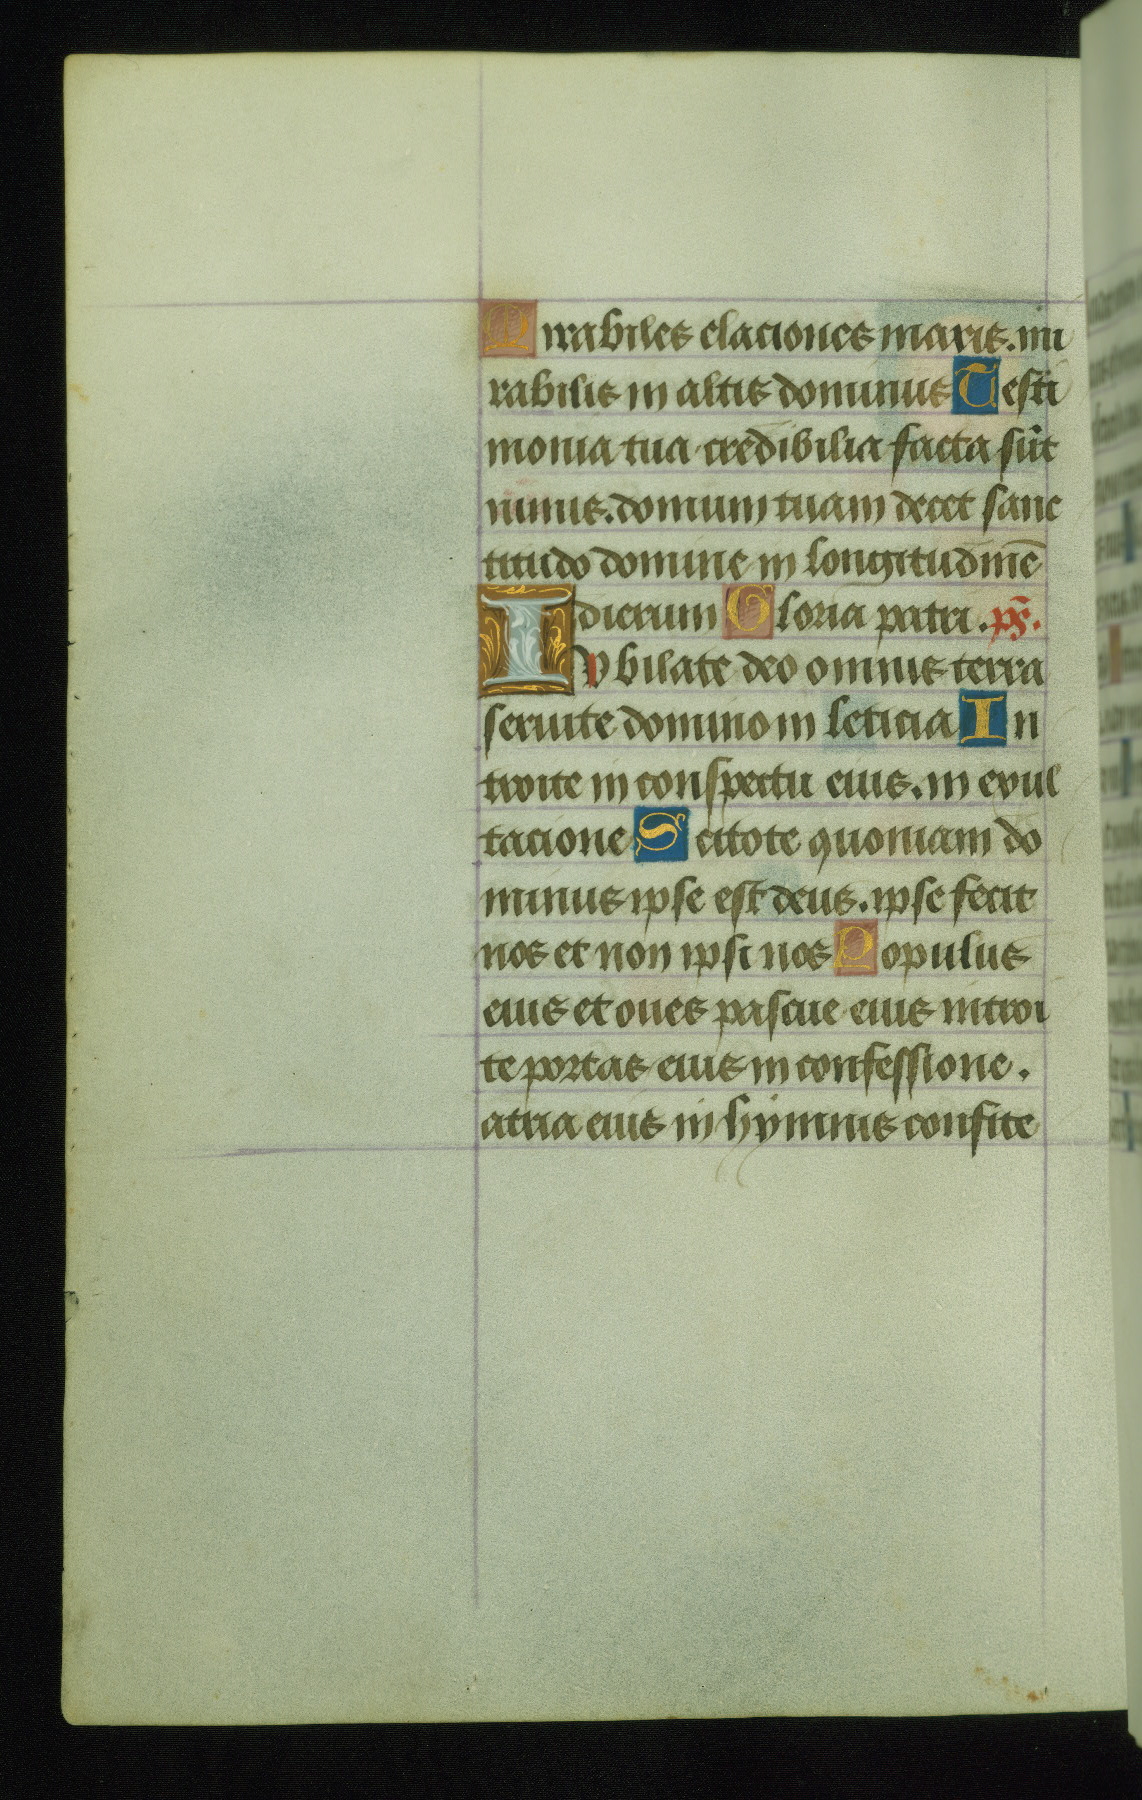 Mirabiles elaciones maris. mi
rabilis in altis dominus Testi
monia tua credibilia facta sũt
nimis. domum tuam decet sanc
titudo domine in longitudinē
dierum Gloria patri. ps̃.
Iubilate deo omnis terra
seruite domino in leticia In
troite in conspectu eius. in exul
tacione Scitote quoniam do
minus ipse est deus. ipse fecit
nos et non ipsi nos Populus
eius et oues pascue eius introi
te portas eius in confessione.
atria eius in hymnis confite